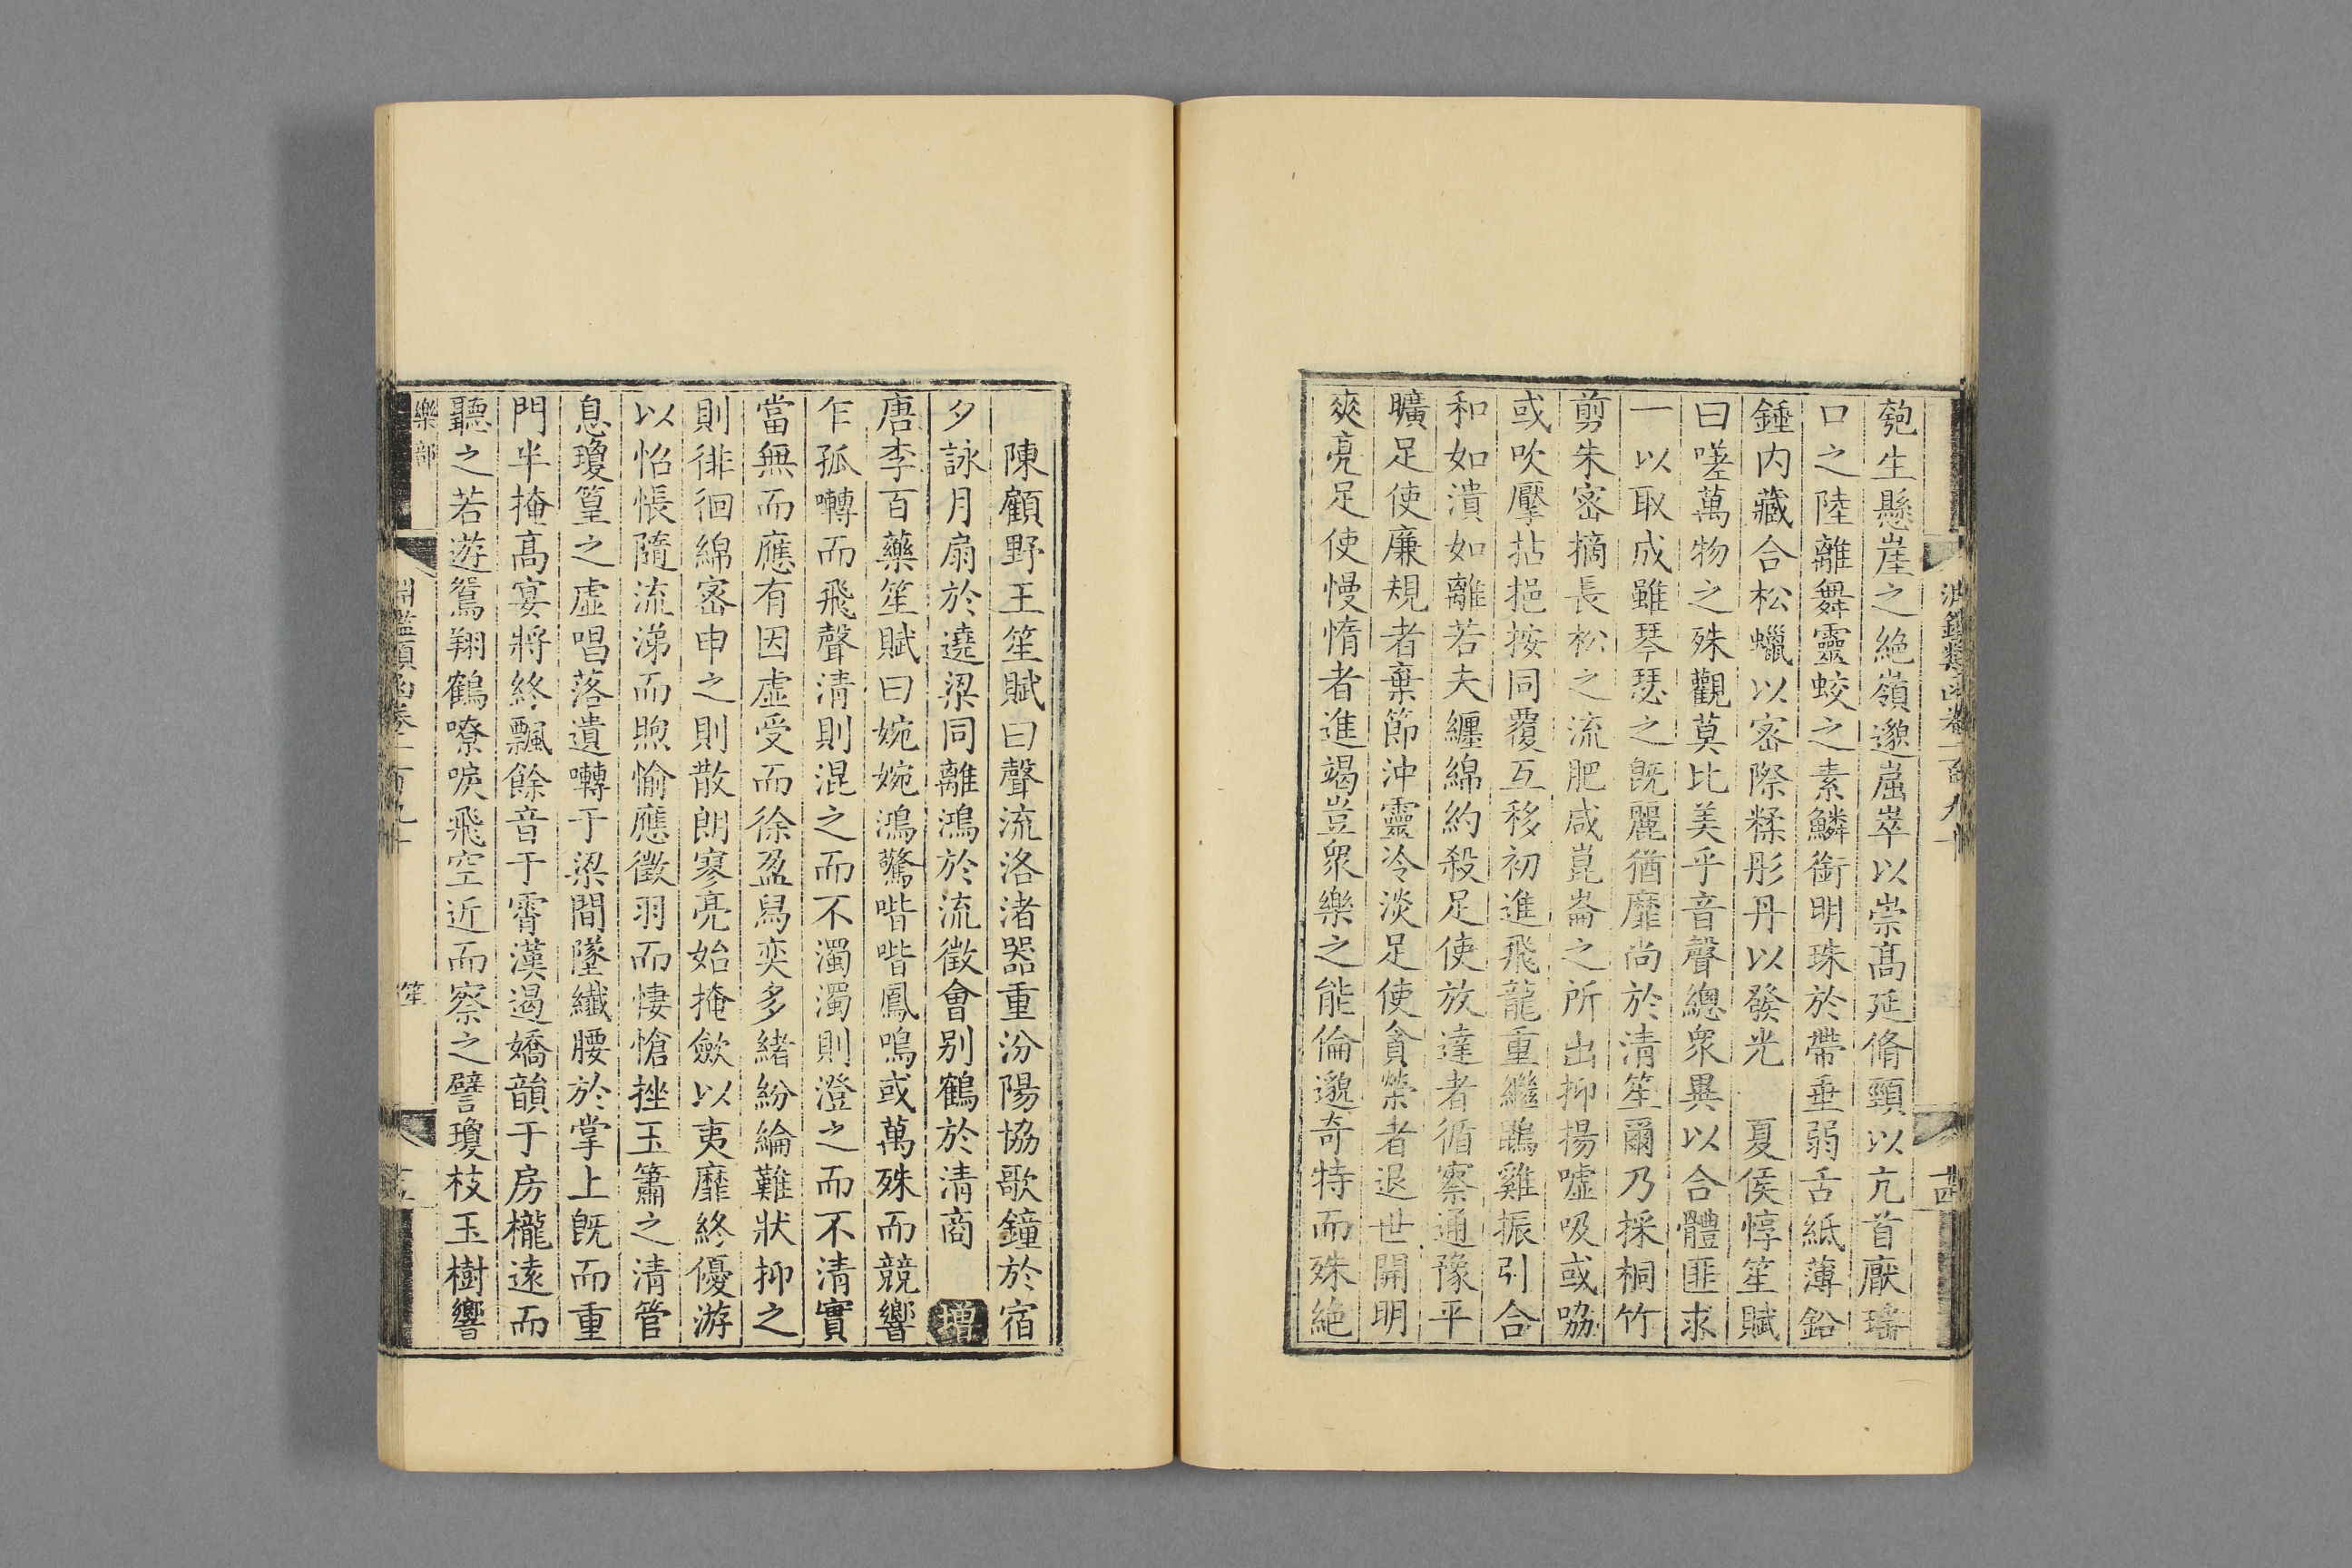 匏生懸崖之絶嶺邈崫崒以崇髙延脩頸以亢首厭瑶
口之陸離舞靈蛟之素鱗銜明珠於帶垂弱舌紙薄鉛
錘内藏合松蠟以宻際糅彤丹以發光　夏侯惇笙賦
曰嗟萬物之殊觀莫比美乎音聲總衆異以合體匪求
一以取成雖琴瑟之旣麗猶靡尚於清笙爾乃採桐竹
剪朱宻摘長松之流肥咸崑崙之所出抑揚噓吸或㗢
或吹擪拈挹按同覆互移初進飛龍重繼鵾雞振引合
和如潰如離若夫纒綿約殺足使放達者循察通豫平
曠足使廉規者棄節沖靈冷淡足使貪榮者退世開明
爽亮足使慢惰者進竭豈衆樂之能倫邈奇特而殊絶
淵鑑類函卷一百九十
古
陳顧野王笙賦曰聲流洛渚器重汾陽協歌鐘於宿
夕詠月扇於遶梁同離鴻於流徵會别鶴於清商　增
唐李百藥笙賦曰婉婉鴻驚喈喈鳳鳴或萬殊而競響
乍孤囀而飛聲清則混之而不濁濁則澄之而不清實
當無而應有因虛受而徐盈舄奕多緒紛綸難狀抑之
則徘徊綿宻申之則散朗寥亮始掩歛以夷靡終優游
以怡悵隨流涕而煦愉應徵羽而悽愴挫玉簫之清管
息瓊篁之虛唱落遺囀于梁間墜纎腰於掌上旣而重
門半掩髙宴將終飄餘音于霄漢遏嬌韻于房櫳遠而
聽之若遊鴛翔鶴嘹唳飛空近而察之譬瓊枝玉樹響
樂部
淵鑑類函卷一百九十
笙